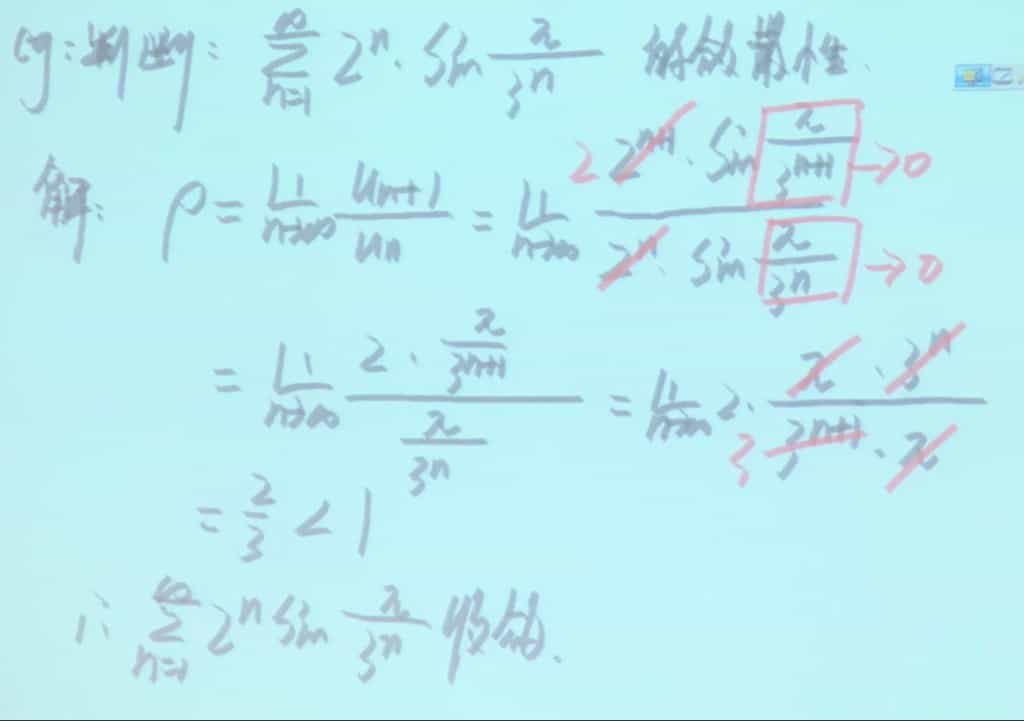 例:判断: $\sum_{n=1}^{\infty} 2^n \cdot \sin \frac{\pi}{3^n}$ 的敛散性.
解: $\rho = \lim_{n \to \infty} \frac{u_{n+1}}{u_n} = \lim_{n \to \infty} \frac{2 \cdot 2^{n+1} \cdot \sin \frac{\pi}{3^{n+1}}}{2^n \cdot \sin \frac{\pi}{3^n}}$ →0 →0
$= \lim_{n \to \infty} \frac{2 \cdot \frac{\pi}{3^{n+1}}}{\frac{\pi}{3^n}} = \lim_{n \to \infty} 2 \cdot \frac{\pi \cdot 3^n}{3 \cdot 3^{n+1} \cdot \pi}$
$= \frac{2}{3} < 1$
∴ $\sum_{n=1}^{\infty} 2^n \sin \frac{\pi}{3^n}$ 收敛.